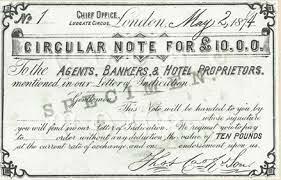 No 1
CHIEF OFFICE
LUDGATE CIRCUS.
London, May 2, 1874
CIRCULAR NOTE FOR £10.0.0.
To the AGENTS, BANKERS, & HOTEL PROPRIETORS.
mentioned in our Letter of Indication
SPECIMEN
Gentlemen
This Note will be handed to you by
whose signature
you will find in our Letter of Indication. We request you to pay
to order without any deduction the value of TEN POUNDS
at the current rate of exchange and on endorsement upon us.
Thos Cook & Son.